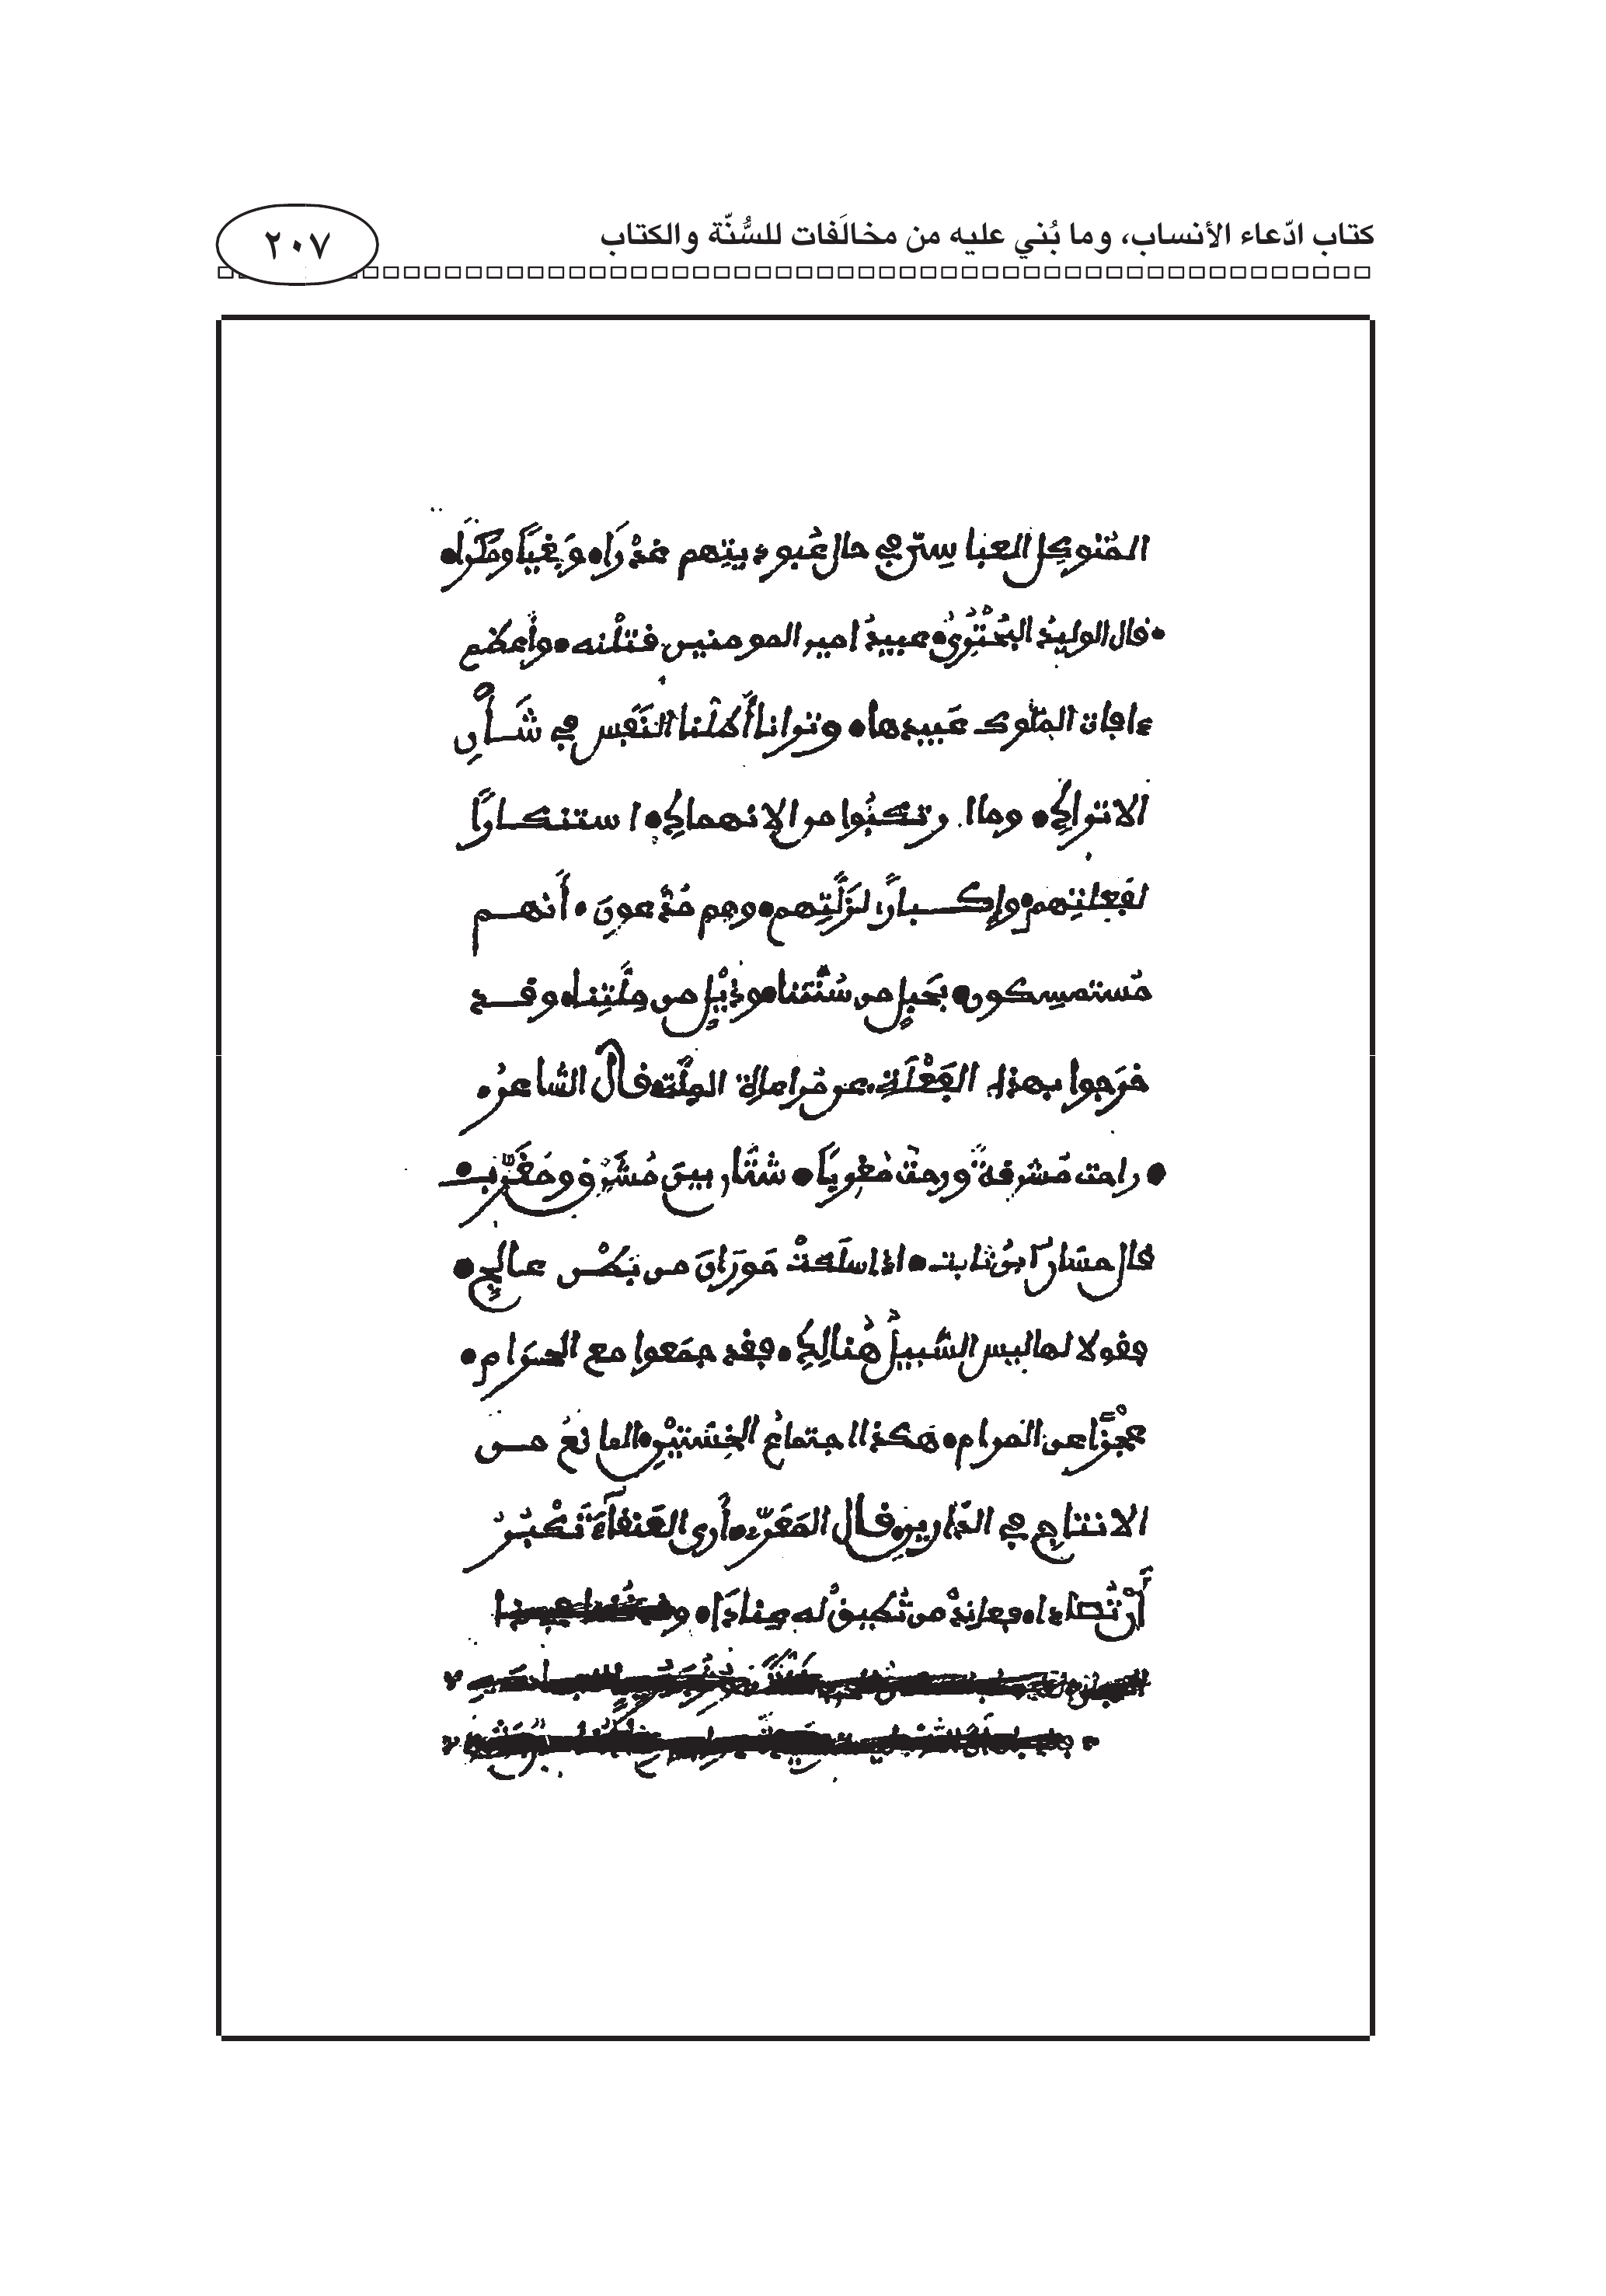 كتاب ادّعاء الأنساب، وما بُني عليه من مخالَفات للسُّنّة والكتاب
٢٠٧
المتوكل العباسيّ في حال عُبوديتهم غدْرًا وبغيًا ومكرًا
قال الوليد البُحْتُريُّ عبيدُ امير المومنين قتلْنه وأعظم
ءافات الملوك عبيدها وتوانا أهلنا النَّفَس في شَأْنِ
الاتراك وما ارتكبُوا من الانهماك استنكارًا
لفعلتهم وإكبارًا لزلَّتِهم وهم مُدَّعونَ أَنهم
مُستمسكون بحَبلٍ من سُنَّتنا وذيْلٍ من مِلَّتِنا وقد
خرَجوا بهذه الفَعْلة عن مُراعاة الملَّة قال الشاعرُ
راحت مُشرقةً ورحتَ مُغربًا شتَّان بين مُشرِّق ومُغرِّب
قال حسَّان بنُ ثابت اذا سلكتْ حَورَانَ من بطْن عالجٍ
فقولا لها ليس السَّبيلُ هُنالِك فقد جمَعوا مع الحرام
عجْزًا عن المرام هكذا اجتماعُ الخِسَّتيْن المانعُ من
الانتاج في الدّارين قال المَعَرّي أرى العَنقآءَ تَكْبُرُ
أنْ تُصَادا فعاندْ من تُطيقُ له عنادَا